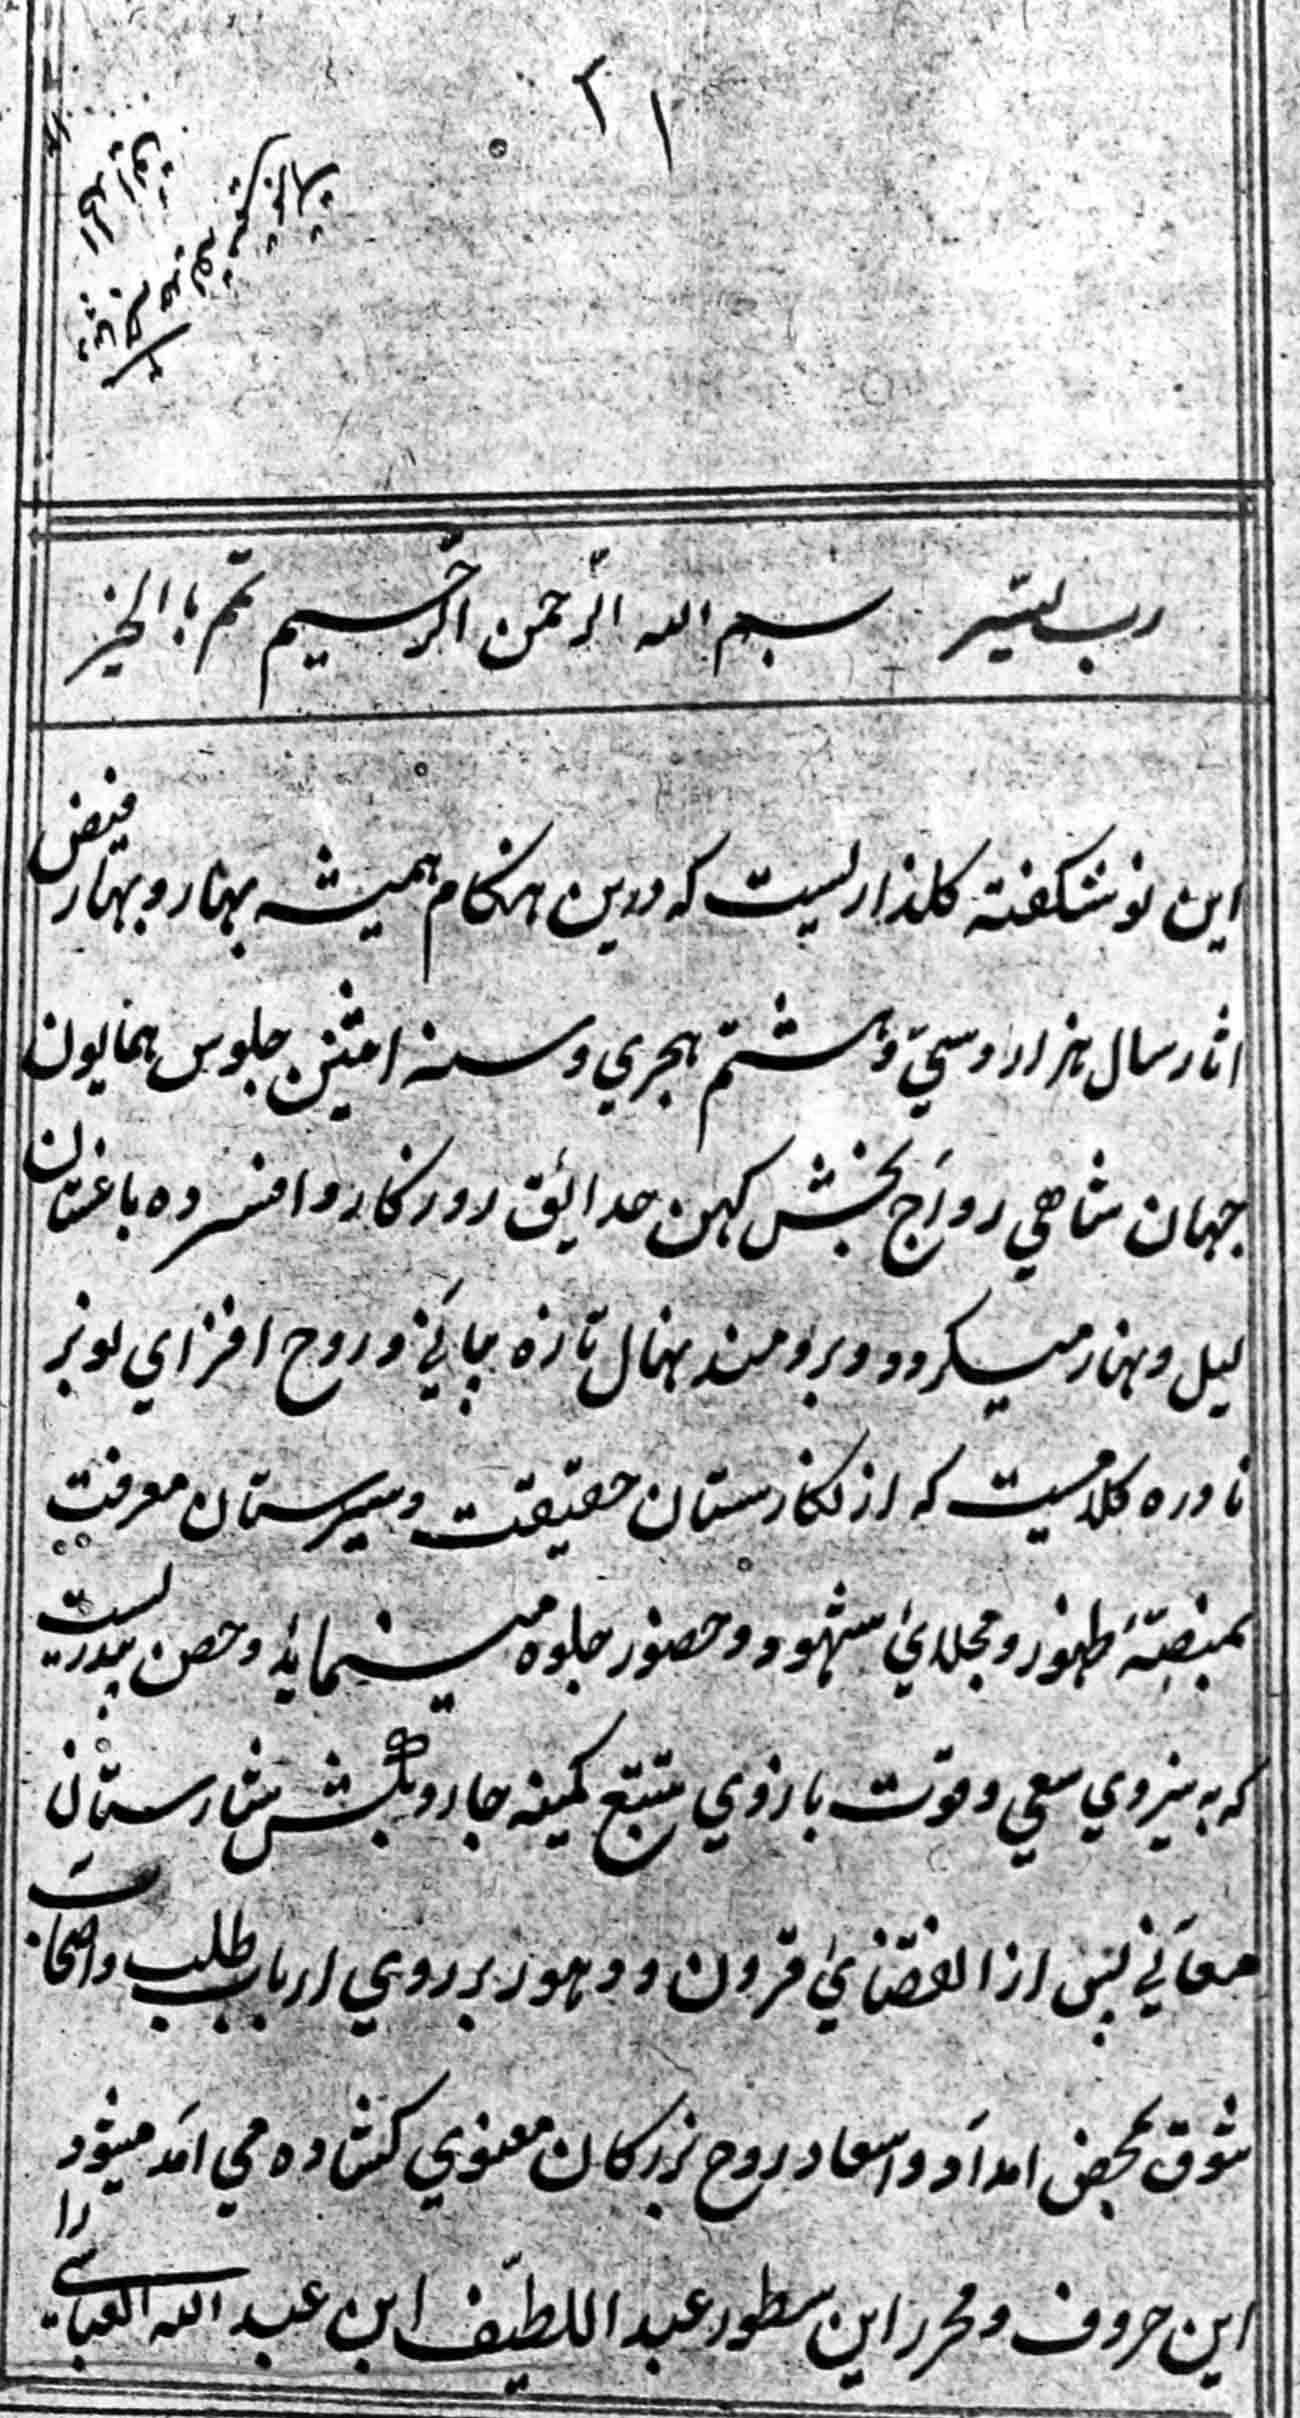 ۲۱
رب یسّر بسم الله الرّحمن الرّحیم تمّم با الخیر
این نو شکفته کلذاریست که درین هنکام همیشه بهار و بهار فیض
اثار سال هزار و سیّ و هشتم هجري و سنه اثنین جلوس همایون
جهان شاهي رواج بخش کهن حدائق روزکار و افسرده باغستان
لیل و نهار میکردد و برومند نهال تازه و روح افزاي نوبر
نادره کلامیست که از نکارستان حقیقت و سیرستان معرفت
بمنصّهٔ ظهور و مجلاي شهود و حضور جلوه مینماید و حصن
که به نیروي سعي و قوّت بازوي تتبّع کمینه جاروبکش شارستاني
معاني پس از انقضاي قرون و دهور بر روي ارباب طلب و اصحاب
شوق بمحض امداد و اسعاد روح بزرکان معنوي کشاده مي امد میشود
این حروف و محرر این سطور عبد اللطیّف ابن عبد الله العباسي را